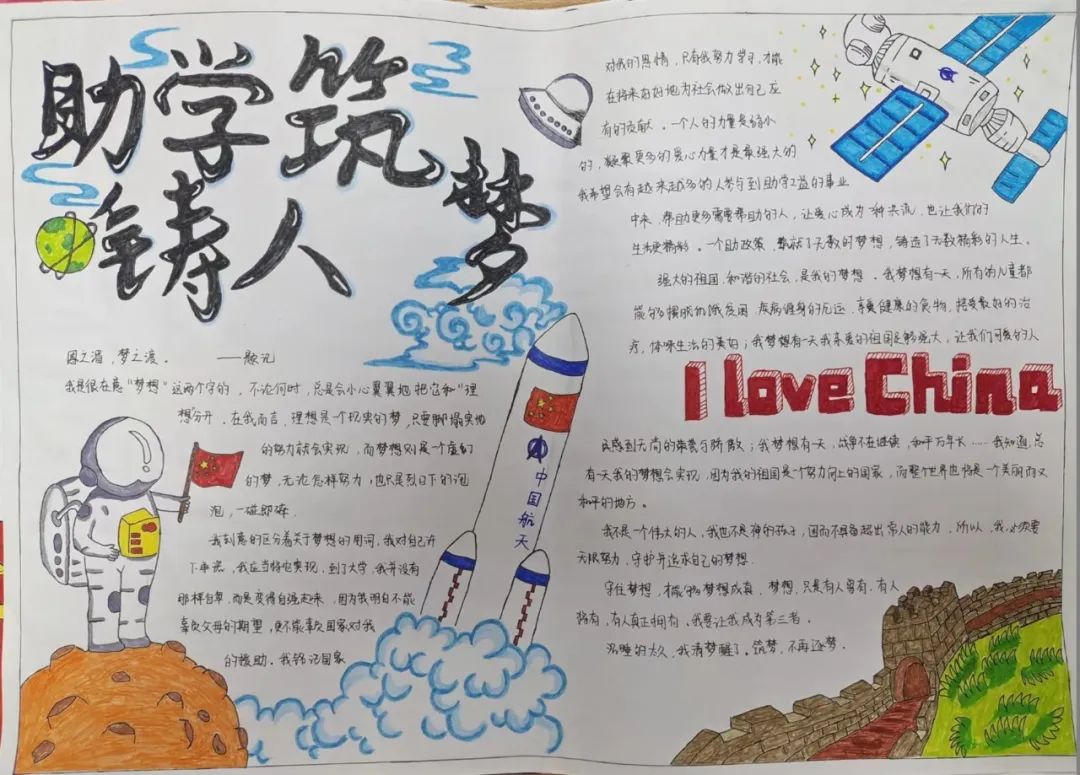 助学筑梦
铸人
思之渭，梦之渡。 ——题记
我是很在意“梦想”这两个字的，不论何时，总是会小心翼翼地把它和“理
想分开。在我而言，理想是个现实的梦，只要脚踏实地
的努力就会实现，而梦想则是一个虚幻
的梦，无论怎样努力，也只是烈日下的泡
泡，一碰即碎。
我刻意的区分着关于梦想的用词，我对自己许
下承诺，我应当将它实现，到了大学，我并没有
那样自卑，而是变得自强起来，因为我明白不能
辜负父母的期望，更不能辜负国家对我
的援助。我铭记国家
中国航天
对我的恩情，只有我努力学习，才能
在将来好好地为社会做出自己应
有的贡献。一个人的力量是缩小
的，凝聚更多的爱心力量才是最强大的
我希望会有越来越多的人参与到助学工益的事业
中来，帮助更多需要帮助的人，让爱心成为一种共流，也让我们的
生活更精彩。一个助政策，集就了无数的梦想，铸造了无数精彩的人生。
强大的祖国，和谐的社会，是我的梦想。我梦想有一天，所有的儿童都
能够摆脱饥饿贫困 疾病缠身的厄运，享受健康的食物，接受最好的治
疗，体味生活的美好；我梦想有一天我亲爱的祖国足够强大，让我们可爱的人
I love China
民感到无尚的荣誉与骄傲；我梦想有一天，战争不在继续，和平万年长……我知道，总
有一天我的梦想会实现，因为我的祖国是个努力向上的国家，而整个世界也将是一个美丽而又
和平的地方。
我不是一个伟大的人，我也不是神的孩子，因而不具备超出常人的能力，所以，我必须要
无限努力，守护并追求自己的梦想。
守住梦想，才能够梦想成真，梦想，只是有人曾有，有人
稀有，有人真正拥有，我要让我成为第三者。
沉睡的太久，我清梦醒了。筑梦，不再逐梦。